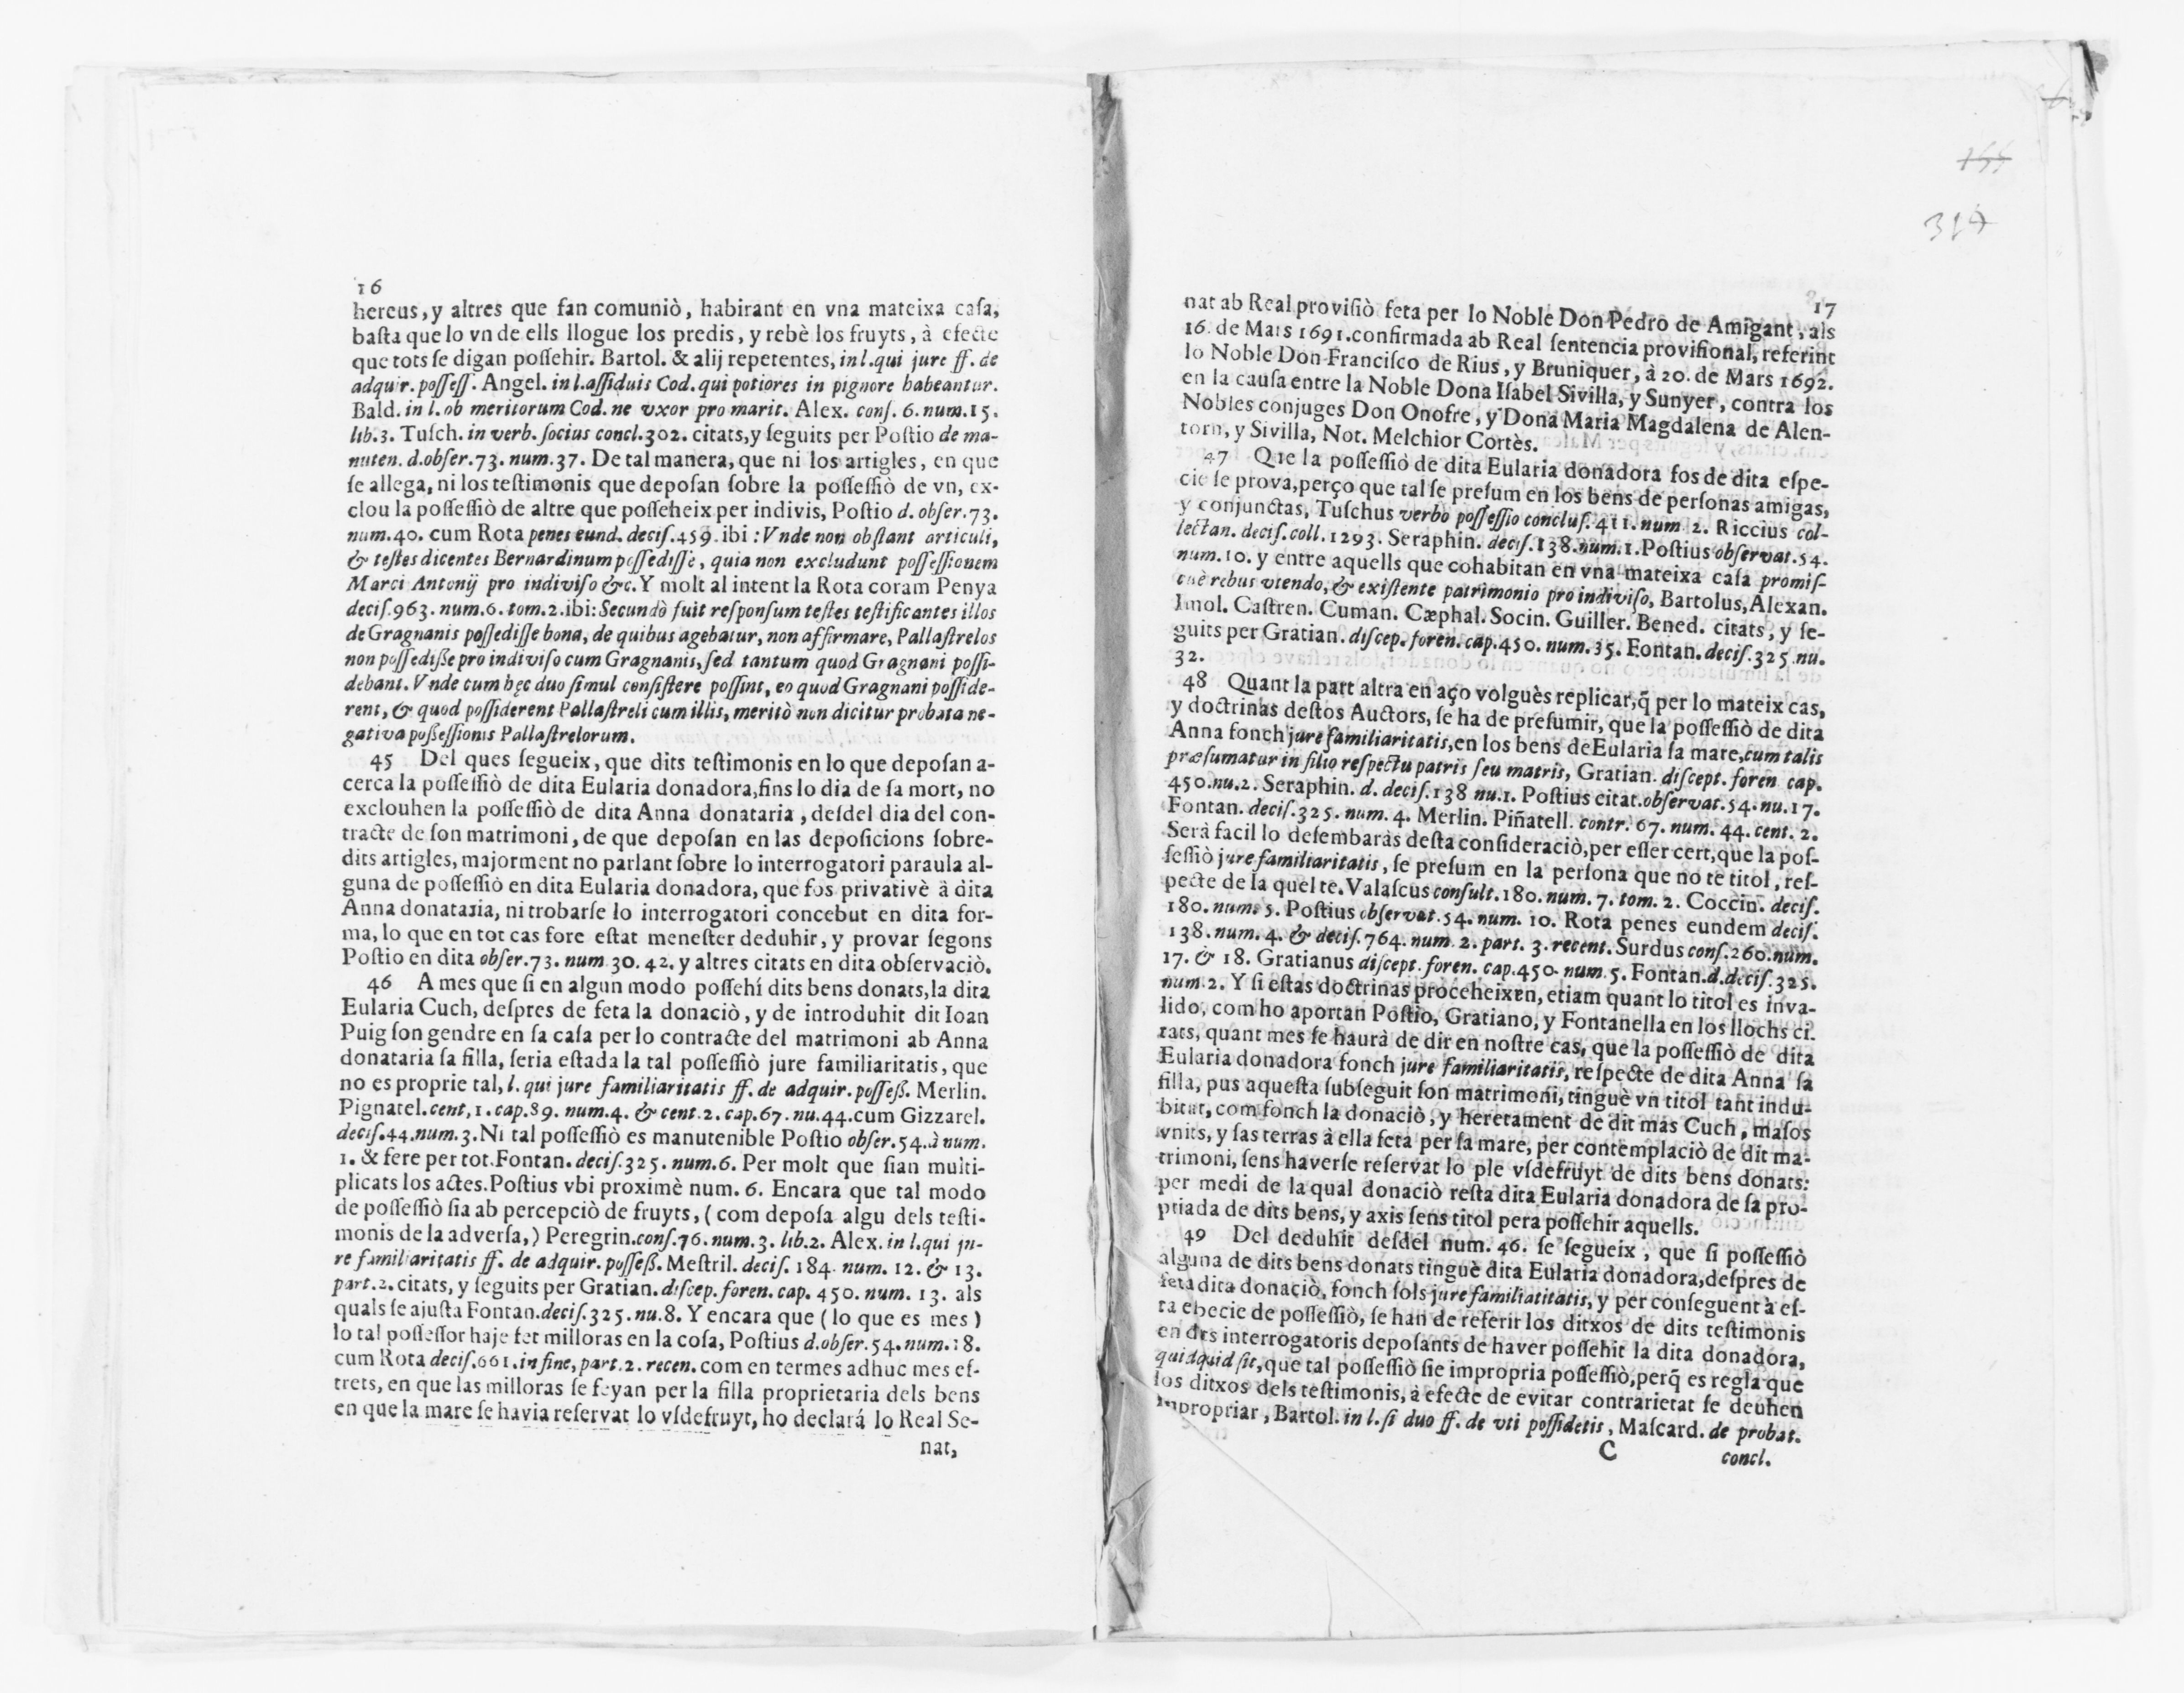 16
hereus, y altres que fan comuniò, habirant en vna mateixa caſa,
baſta que lo vn de ells llogue los predis, y rebè los fruyts, à efecte
que tots ſe digan poſſehir. Bartol. & alij repetentes, in l. qui jure ff. de
adquir. poſſeſſ. Angel. in l. aſſiduis Cod. qui potiores in pignore habeantur.
Bald. in l. ob meritorum Cod. ne vxor pro marit. Alex. conſ. 6. num. 15.
lib. 3. Tuſch. in verb. ſocius concl. 302. citats, y ſeguits per Poſtio de ma-
nuten. d. obſer. 73. num. 37. De tal manera, que ni los artigles, en que
ſe allega, ni los teſtimonis que depoſan ſobre la poſſeſſiò de vn, ex-
clou la poſſeſſiò de altre que poſſeheix per indivis, Poſtio d. obſer. 73.
num. 40. cum Rota penes eund. deciſ. 459. ibi: Vnde non obſtant articuli,
& teſtes dicentes Bernardinum poſſediſſe, quia non excludunt poſſeſſionem
Marci Antonij pro indiviſo &c. Y molt al intent la Rota coram Penya
deciſ. 963. num. 6. tom. 2. ibi: Secundò fuit reſponſum teſtes teſtificantes illos
de Gragnanis poſſediſſe bona, de quibus agebatur, non affirmare, Pallaſtrelos
non poſſediße pro indiviſo cum Gragnanis, ſed tantum quod Gragnani poſſi-
debant. Vnde cum hęc duo ſimul conſiſtere poſſint, eo quod Gragnani poſſide-
rent, & quod poſſiderent Pallaſtreli cum illis, meritò non dicitur probata ne-
gativa poßeſſionis Pallaſtrelorum.
45 Del ques ſegueix, que dits teſtimonis en lo que depoſan a-
cerca la poſſeſſiò de dita Eularia donadora, fins lo dia de ſa mort, no
exclouhen la poſſeſſiò de dita Anna donataria, deſdel dia del con-
tracte de ſon matrimoni, de que depoſan en las depoſicions ſobre-
dits artigles, majorment no parlant ſobre lo interrogatori paraula al-
guna de poſſeſſiò en dita Eularia donadora, que fos privativè à dita
Anna donataria, ni trobarſe lo interrogatori concebut en dita for-
ma, lo que en tot cas fore eſtat meneſter deduhir, y provar ſegons
Poſtio en dita obſer. 73. num. 30. 42. y altres citats en dita obſervaciò.
46 A mes que ſi en algun modo poſſehí dits bens donats, la dita
Eularia Cuch, deſpres de feta la donaciò, y de introduhit dit Ioan
Puig ſon gendre en ſa caſa per lo contracte del matrimoni ab Anna
donataria ſa filla, ſeria eſtada la tal poſſeſſiò jure familiaritatis, que
no es proprie tal, l. qui jure familiaritatis ff. de adquir. poſſeß. Merlin.
Pignatel. cent, 1. cap. 89. num. 4. & cent. 2. cap. 67. nu. 44. cum Gizzarel.
deciſ. 44. num. 3. Ni tal poſſeſſiò es manutenible Poſtio obſer. 54. à num.
1. & fere per tot. Fontan. deciſ. 325. num. 6. Per molt que ſian multi-
plicats los actes. Poſtius vbi proximè num. 6. Encara que tal modo
de poſſeſſiò ſia ab percepciò de fruyts, (com depoſa algu dels teſti-
monis de la adverſa,) Peregrin. conſ. 76. num. 3. lib. 2. Alex. in l. qui ju-
re familiaritatis ff. de adquir. poſſeß. Meſtril. deciſ. 184. num. 12. & 13.
part. 2. citats, y ſeguits per Gratian. diſcep. foren. cap. 450. num. 13. als
quals ſe ajuſta Fontan. deciſ. 325. nu. 8. Y encara que (lo que es mes)
lo tal poſſeſſor haje fet milloras en la coſa, Poſtius d. obſer. 54. num. 18.
cum Rota deciſ. 661. in fine, part. 2. recen. com en termes adhuc mes eſ-
trets, en que las milloras ſe feyan per la filla proprietaria dels bens
en que la mare ſe havia reſervat lo vſdefruyt, ho declará lo Real Se-
nat,
17
nat ab Real proviſiò feta per lo Noble Don Pedro de Amigant, als
16. de Mars 1691. confirmada ab Real ſentencia proviſional, referint
lo Noble Don Franciſco de Rius, y Bruniquer, à 20. de Mars 1692.
en la cauſa entre la Noble Dona Iſabel Sivilla, y Sunyer, contra los
Nobles conjuges Don Onofre, y Dona Maria Magdalena de Alen-
torn, y Sivilla, Not. Melchior Cortès.
47 Que la poſſeſſiò de dita Eularia donadora fos de dita eſpe-
cie ſe prova, perço que tal ſe preſum en los bens de perſonas amigas,
y conjunctas, Tuſchus verbo poſſeſſio concluſ. 411. num. 2. Riccius col-
lectan. deciſ. coll. 1293. Seraphin. deciſ. 138. num. 1. Poſtius obſervat. 54.
num. 10. y entre aquells que cohabitan en vna mateixa caſa promiſ-
cuè rebus vtendo, & exiſtente patrimonio pro indiviſo, Bartolus, Alexan.
Imol. Caſtren. Cuman. Cæphal. Socin. Guiller. Bened. citats, y ſe-
guits per Gratian. diſcep. foren. cap. 450. num. 35. Fontan. deciſ. 325. nu.
32.
48 Quant la part altra en aço volguès replicar, q̃ per lo mateix cas,
y doctrinas deſtos Auctors, ſe ha de preſumir, que la poſſeſſiò de dita
Anna fonch jure familiaritatis, en los bens de Eularia ſa mare, cum talis
præſumatur in filio reſpectu patris ſeu matris, Gratian. diſcept. foren cap.
450. nu. 2. Seraphin. d. deciſ. 138 nu. 1. Poſtius citat. obſervat. 54. nu. 17.
Fontan. deciſ. 325. num. 4. Merlin. Piñatell. contr. 67. num. 44. cent. 2.
Serà facil lo deſembaràs deſta conſideraciò, per eſſer cert, que la poſ-
ſeſſiò jure familiaritatis, ſe preſum en la perſona que no te titol, reſ-
pecte de la quel te. Valaſcus conſult. 180. num. 7. tom. 2. Coccin. deciſ.
180. num. 5. Poſtius obſervat. 54. num. 10. Rota penes eundem deciſ.
138. num. 4. & deciſ. 764. num. 2. part. 3. recent. Surdus conſ. 260. num.
17. & 18. Gratianus diſcept. foren. cap. 450. num. 5. Fontan. d. deciſ. 325.
num. 2. Y ſi eſtas doctrinas proceheixen, etiam quant lo titol es inva-
lido, com ho aportan Poſtio, Gratiano, y Fontanella en los llochs ci-
tats, quant mes ſe haurà de dir en noſtre cas, que la poſſeſſiò de dita
Eularia donadora fonch jure familiaritatis, reſpecte de dita Anna ſa
filla, pus aqueſta ſubſeguit ſon matrimoni, tinguè vn titol tant indu-
bitat, com fonch la donaciò, y heretament de dit mas Cuch, maſos
vnits, y ſas terras à ella feta per ſa mare, per contemplaciò de dit ma-
trimoni, ſens haverſe reſervat lo ple vſdefruyt de dits bens donats:
per medi de la qual donaciò reſta dita Eularia donadora de ſa pro-
priada de dits bens, y axis ſens titol pera poſſehir aquells.
49 Del deduhit deſdel num. 46. ſe ſegueix, que ſi poſſeſſiò
alguna de dits bens donats tinguè dita Eularia donadora, deſpres de
feta dita donaciò, fonch ſols jure familiatitatis, y per conſeguent à eſ-
ta eſpecie de poſſeſſiò, ſe han de referir los ditxos de dits teſtimonis
en dits interrogatoris depoſants de haver poſſehit la dita donadora,
quidquid ſit, que tal poſſeſſiò ſie impropria poſſeſſiò, perq̃ es regla que
los ditxos dels teſtimonis, à efecte de evitar contrarietat ſe deuhen
impropriar, Bartol. in l. ſi duo ff. de vti poſſidetis, Maſcard. de probat.
C concl.